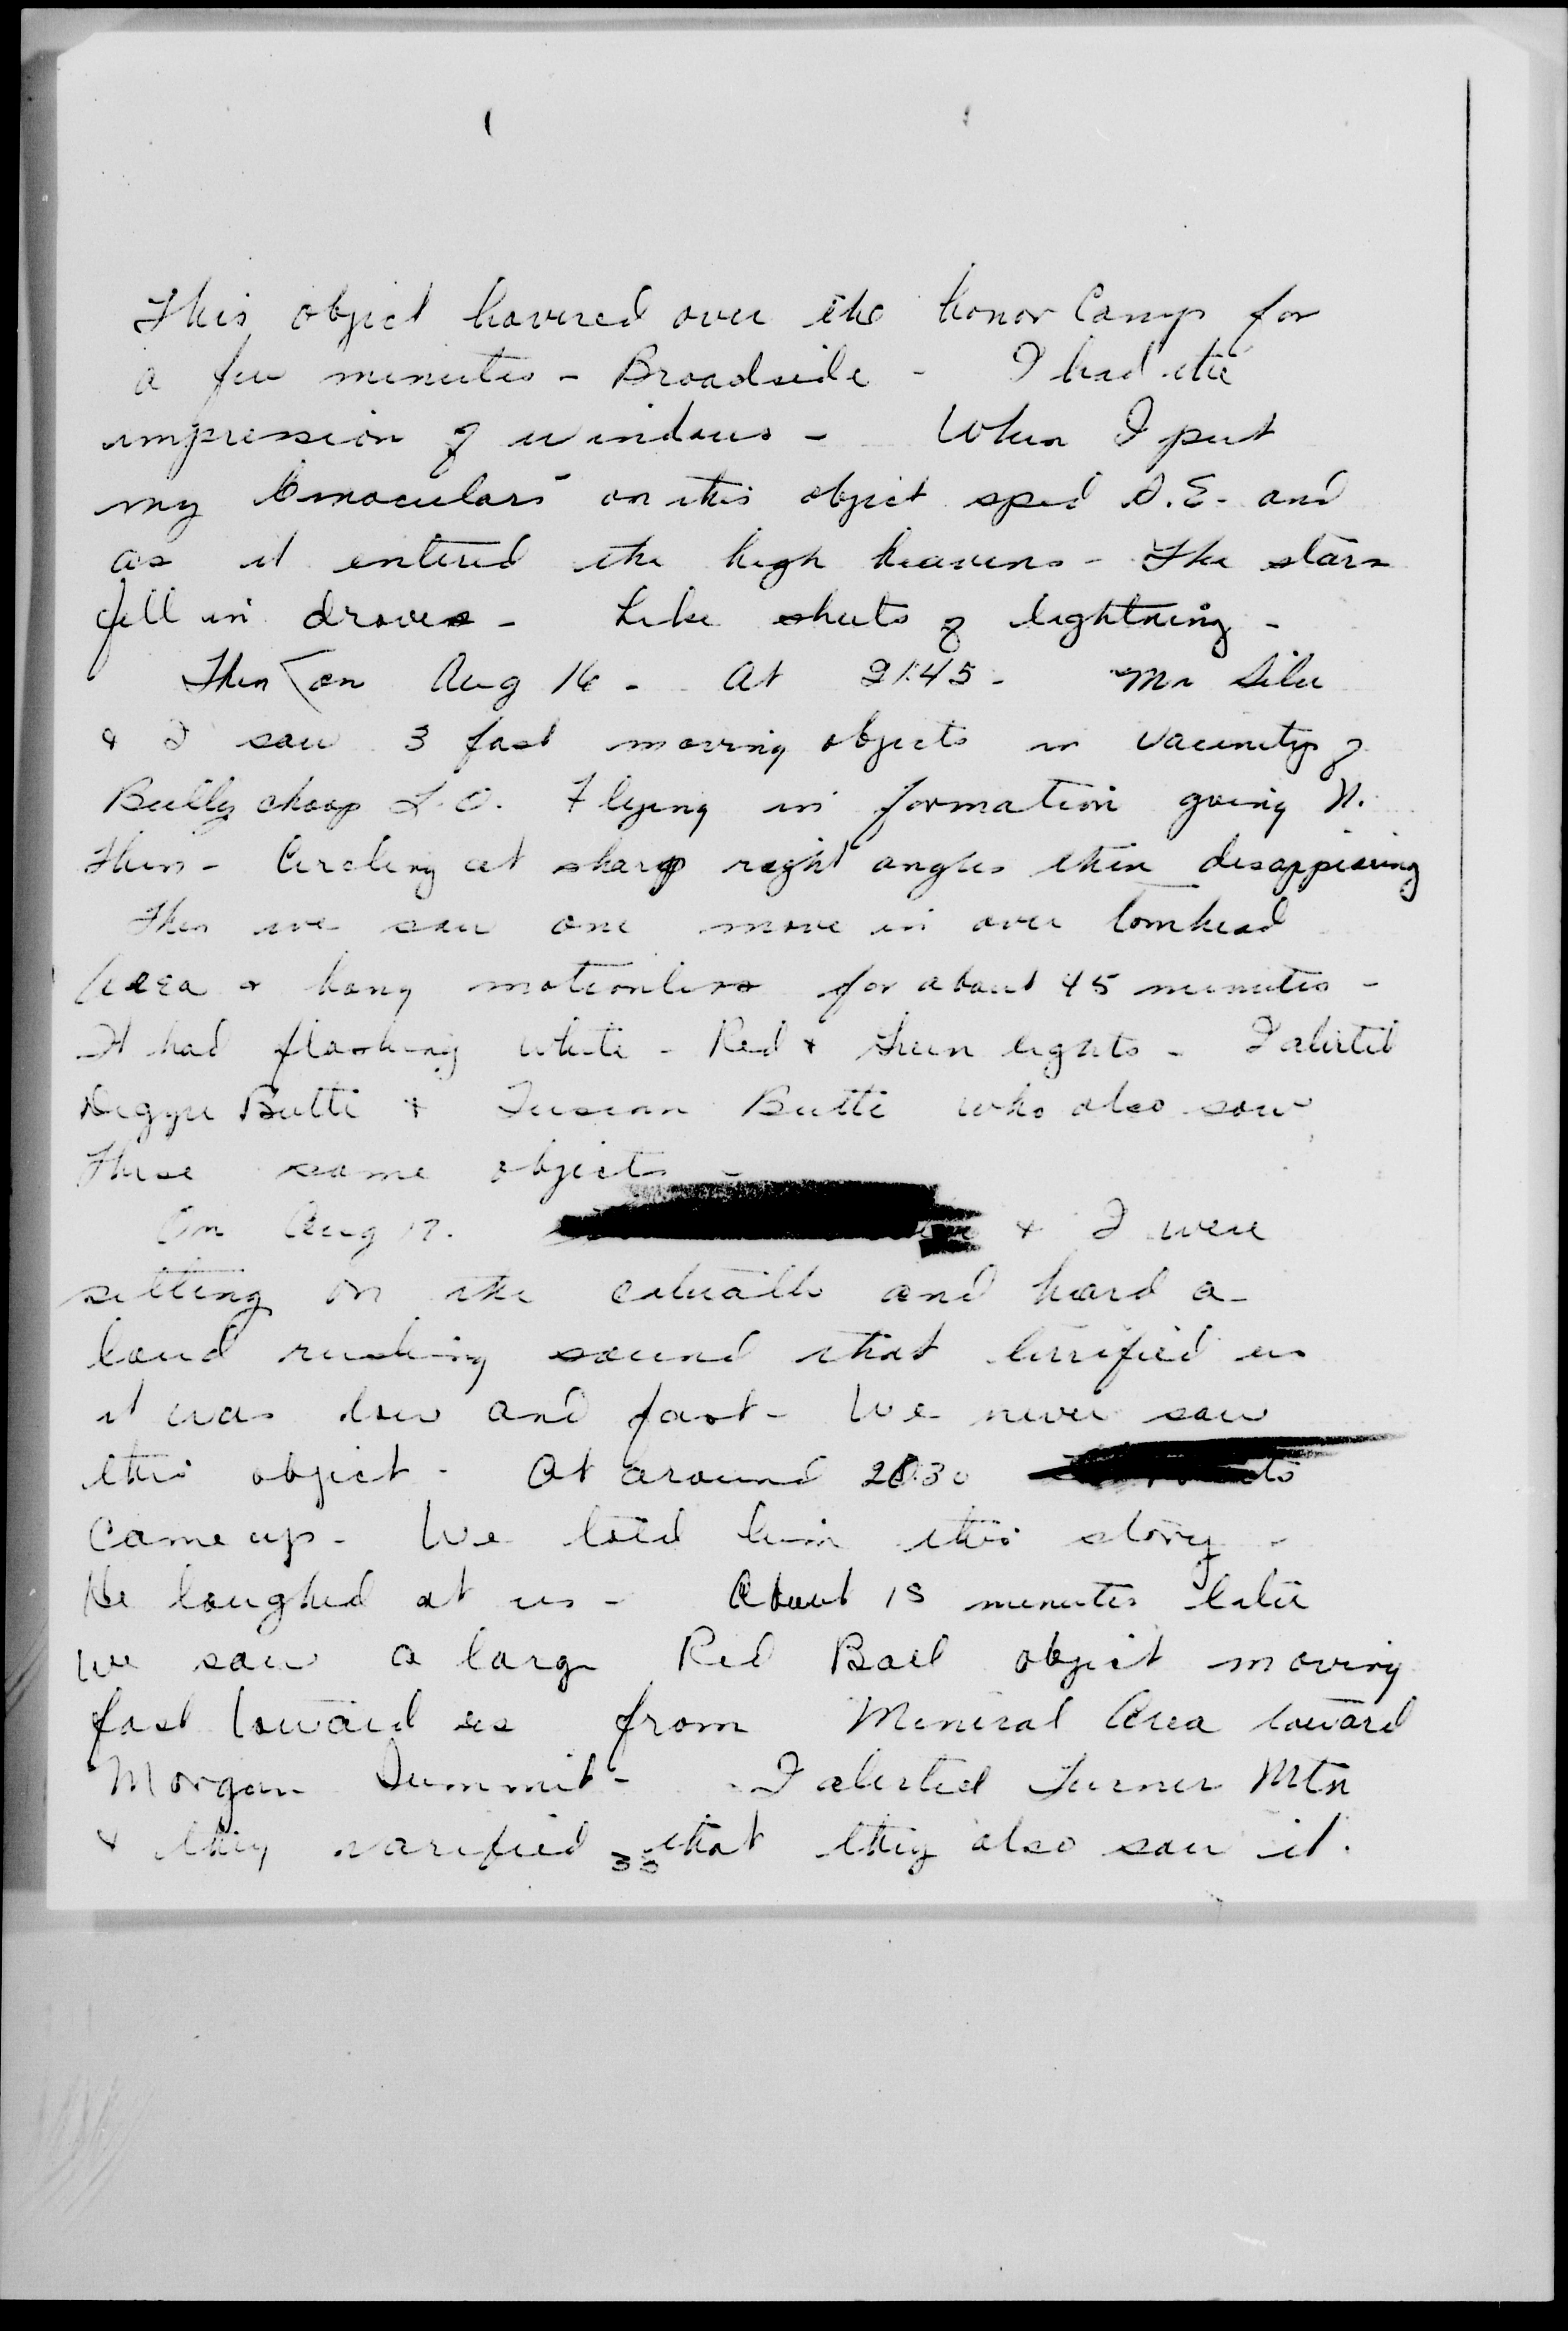 This object hovered over the honor Camp for
a few minutes - Broadside - I had the
impression of windows - When I put
my binoculars on this object sped S.E. and
as it entered the high heavens - The stars
fell in droves - Like sheets of lightning -
Then on Aug 16 - At 2145 - Mr
& I saw 3 fast moving objects in vacinity of
Bully choop L.O. Flying in formation going N.
Then - Circling at sharp right angles then disappearing
Then we saw one move in over
Area & hang motionless for about 45 minutes -
It had flashing white - Red & Green lights - I alerted
Butte & Tuscan Butte who also saw
These same objects -
On Aug 17. & I were
setting on the catwalk and heard a
loud rushing sound that terrified us
it was low and fast - We never saw
this object - At around 2030
Came up - We told him this story -
He laughed at us - About 15 minutes later
We saw a large Red Ball object moving
fast toward us from Mineral Area toward
Morgan Summit - I alerted Turner Mtn
& they varified that they also saw it.
33